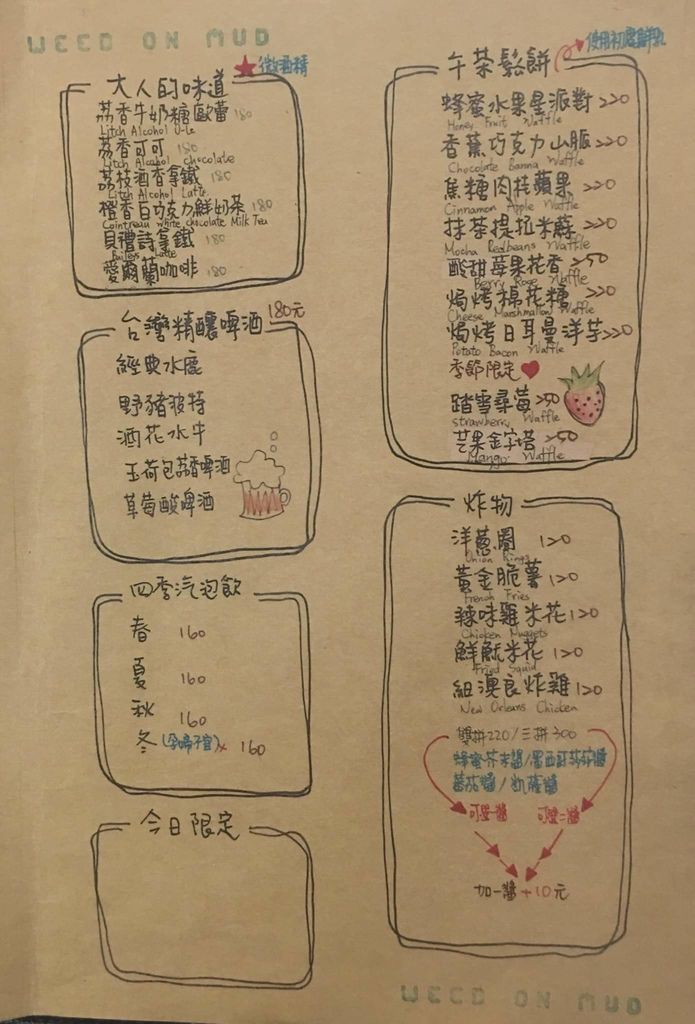 WEED ON MUD
大人的味道
★微酒精
荔香牛奶糖歐蕾 180
Litch Alcohol O-le
荔香可可 180
Litch Alcohol chocolate
荔枝酒香拿鐵 180
Litch Alcohol Latte
橙香白巧克力鮮奶茶 180
Cointreau white chocolate Milk Tea
貝禮詩拿鐵 180
Baileys Latte
愛爾蘭咖啡 180
台灣精釀啤酒 180元
經典水鹿
野豬波特
酒花水牛
玉荷包荔香啤酒
草莓酸啤酒
四季汽泡飲
春 160
夏 160
秋 160
冬(孕婦不宜) 160
今日限定
午茶鬆餅
蜂蜜水果星派對 220
Honey Fruit Waffle
香蕉巧克力山脈 220
Chocolate Banna Waffle
焦糖肉桂蘋果 220
Cinnamon Apple Waffle
抹茶提拉米蘇 220
Mocha Redbeans Waffle
酸甜莓果花香 250
Berry Rose Waffle
焗烤棉花糖 220
Cheese Marshmallow Waffle
焗烤日耳曼洋芋 220
Potato Bacon Waffle
季節限定♥
踏雪尋莓 250
strawberry Waffle
芒果金字塔 250
Mango Waffle
炸物
洋蔥圈 120
Onion Rings
黃金脆薯 120
French Fries
辣味雞米花 120
Chicken Nuggets
鮮魷米花 120
Fried Squid
紐澳良炸雞 120
New Orleans Chicken
雙拼220/三拼300
蜂蜜芥末醬/墨西哥莎莎醬
蕃茄醬/凱薩醬
可選一醬 可選二醬
加一醬+10元
WEED ON MUD